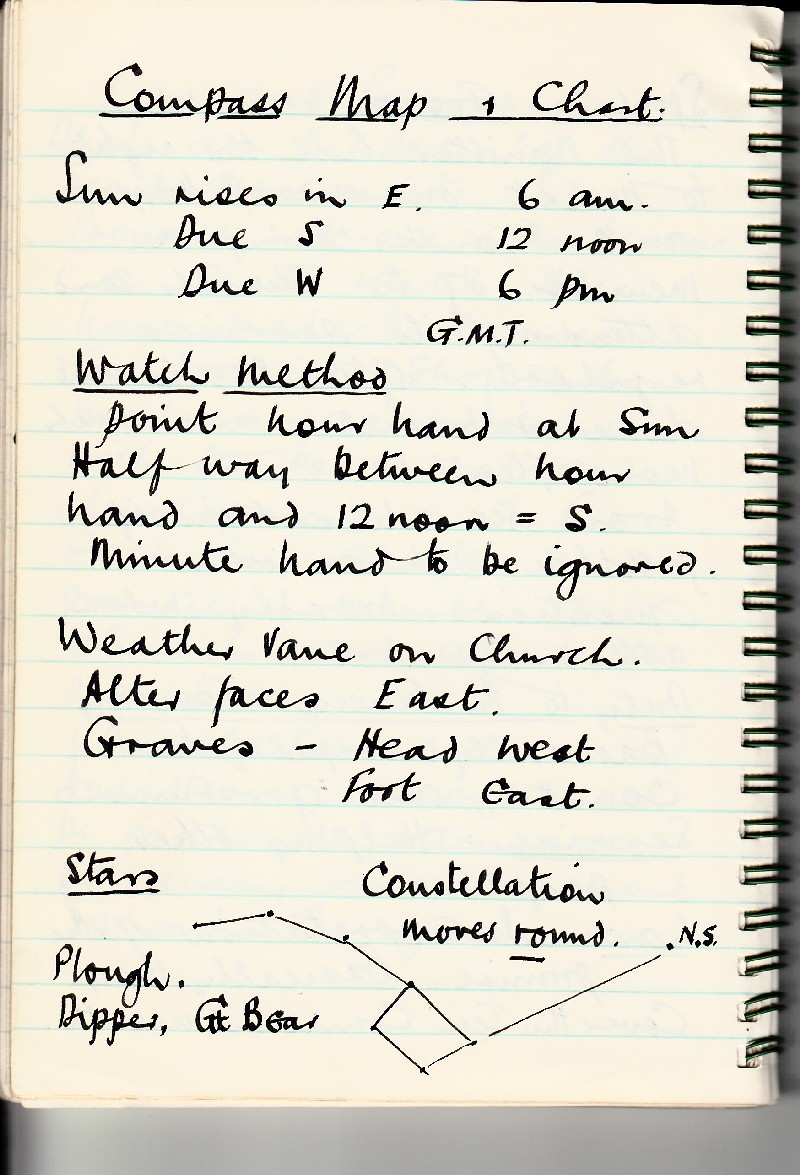 Compass Map + Chart.
Sun rises in E. 6 am.
Due S 12 noon
Due W 6 pm
G.M.T.
Watch Method
point hour hand at Sun
Half way between hour
hand and 12 noon = S.
Minute hand to be ignored.
Weather Vane on Church.
Alter faces East.
Graves - Head West
Foot East.
Stars
Constellation
moves round.
N.S.
Plough.
Dipper, Gt Bear